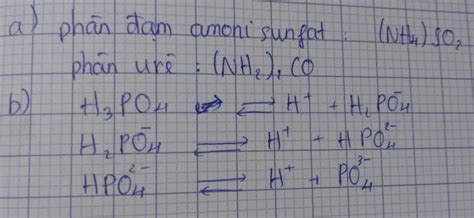 a) phân đạm amoni sunfat : (NH₄) SO₂
phân urê : (NH₂)₂ CO
b) H₃PO₄ ⇌ H⁺ + H₂PO₄⁻
H₂PO₄⁻ ⇌ H⁺ + HPO₄²⁻
HPO₄²⁻ ⇌ H⁺ + PO₄³⁻